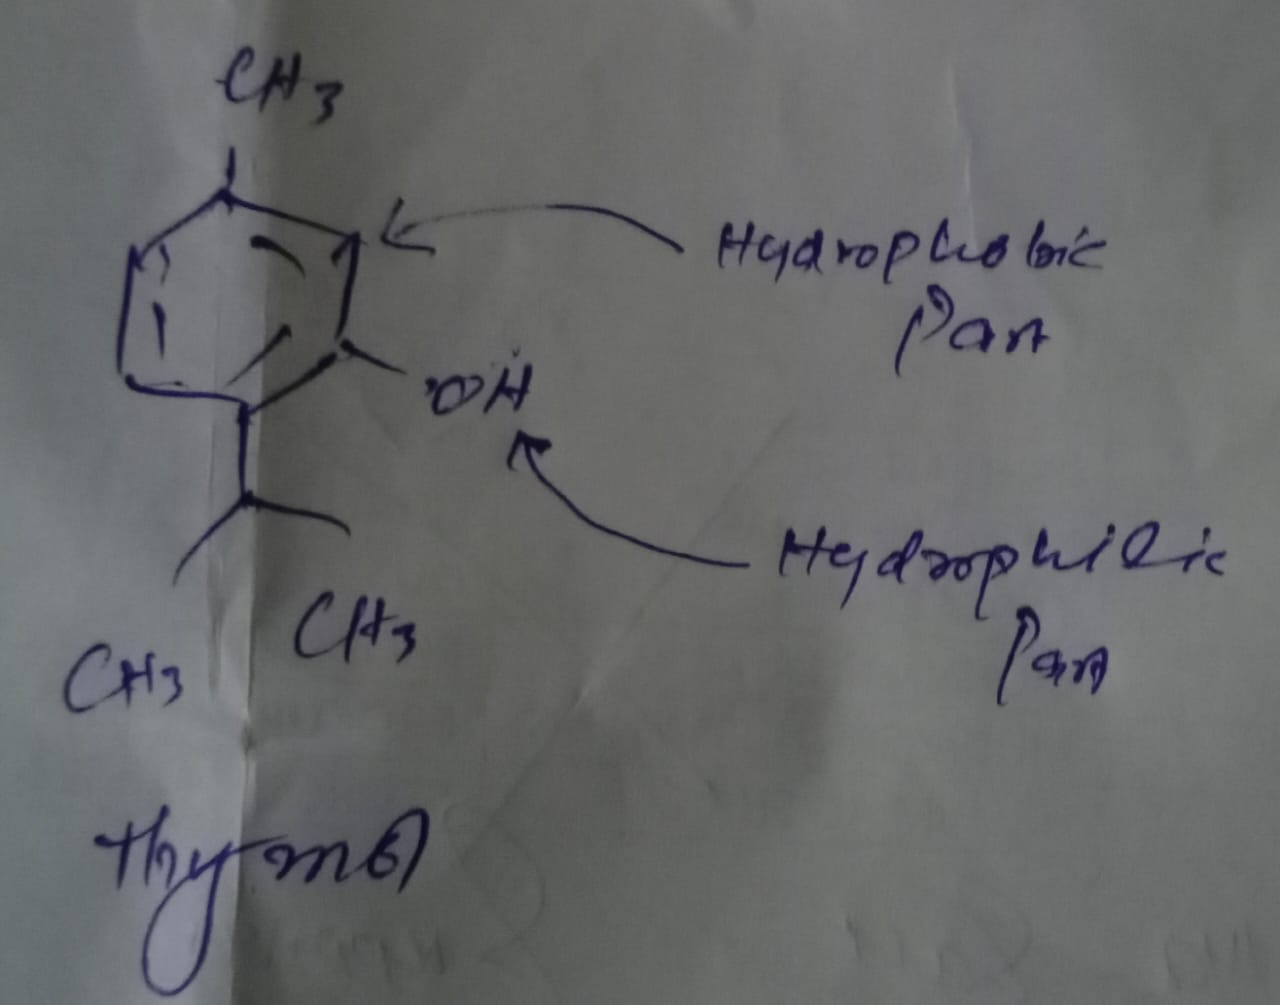 CH3
Hydrophobic
Part
OH
Hydrophilic
Part
CH3
CH3
Thymol